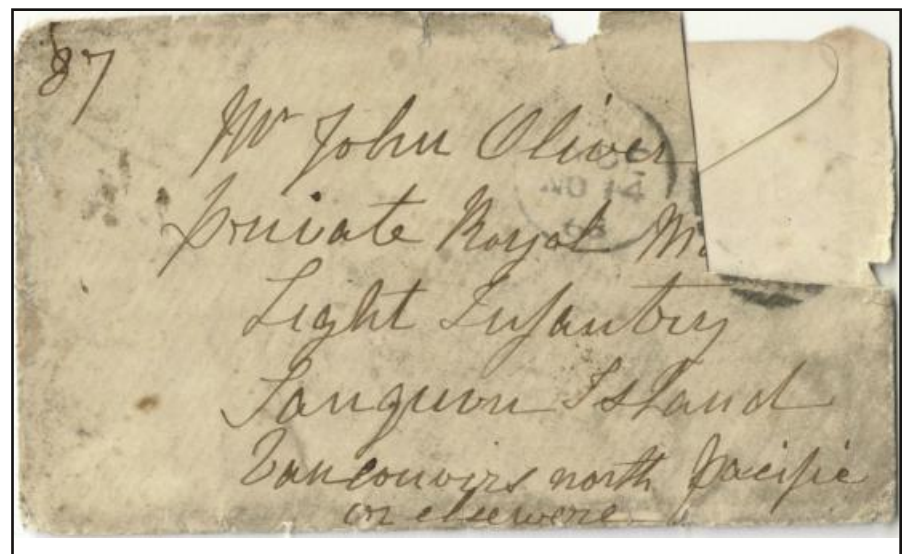 87
Mr John Oliver
private Royal M
Light Infantry
Sanquon Island
Vancouvers north pacific
or elsewere
NO 14